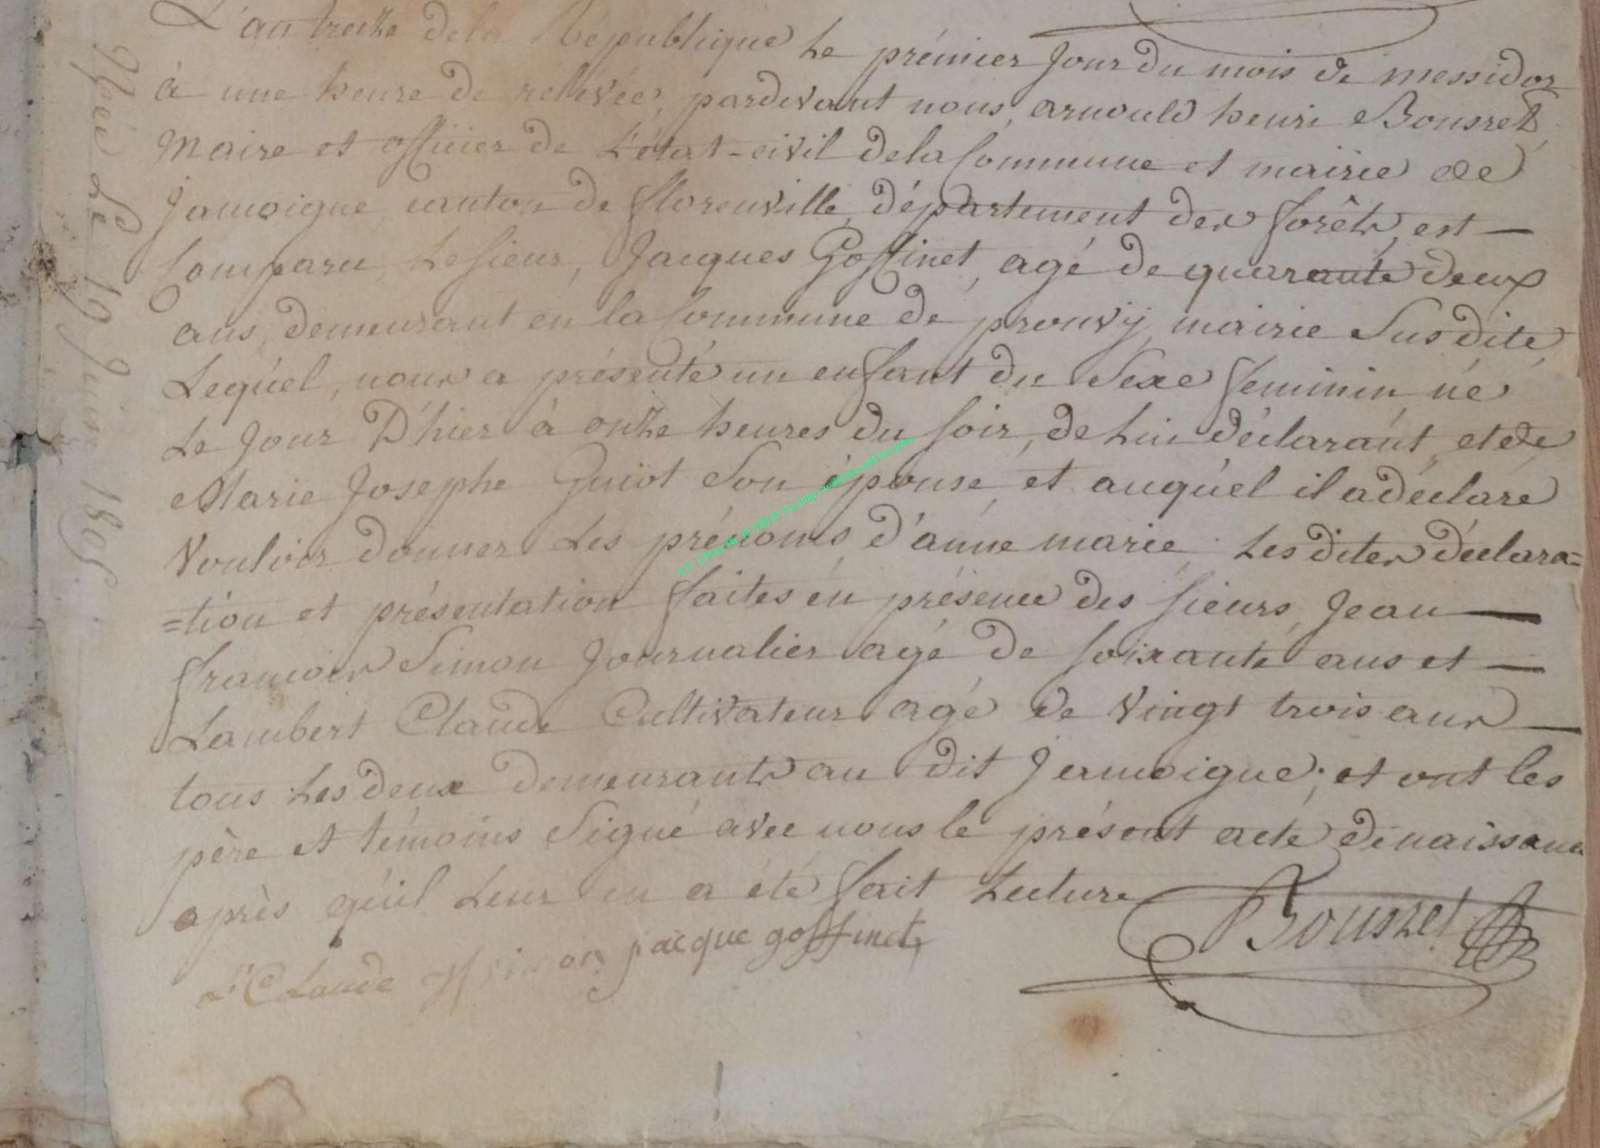 L'an treize de la République le prémier jour du mois de messidor
à une heure de relevée, pardevant nous, arnould henri Bousret,
Maire et officier de L'état-civil de la Commune et mairie de
Jamoigne, canton de florenville, département des forêts, est —
Comparu, Le sieur, Jacques Goffinet, agé de quarante deux
ans, demeurant en la Commune de prouvÿ, mairie Susdite,
Lequel, nous a présenté un enfant du Sexe feminin né
Le Jour D'hier à onze heures du soir, de Lui déclarant, et de
Marie Josephe Guiot Son épouse, et auquel il a déclaré
Vouloir donner Les prénoms, d'anne marie, Lesdites déclara=
=tion et présentation faites en présence des sieurs, Jean —
françois Simon Journalier agé de soixante ans et —
Lambert Claude Cultivateur agé de vingt trois ans —
tous Les deux demeurants au dit Jamoigne; et ont les
père et témoins Signé avec nous le présent acte de naissance
après qu'il Leur en a été fait Lecture.
L Claude Jf simon jacque goffinet Bousret
Née Le 19 Juin 1805